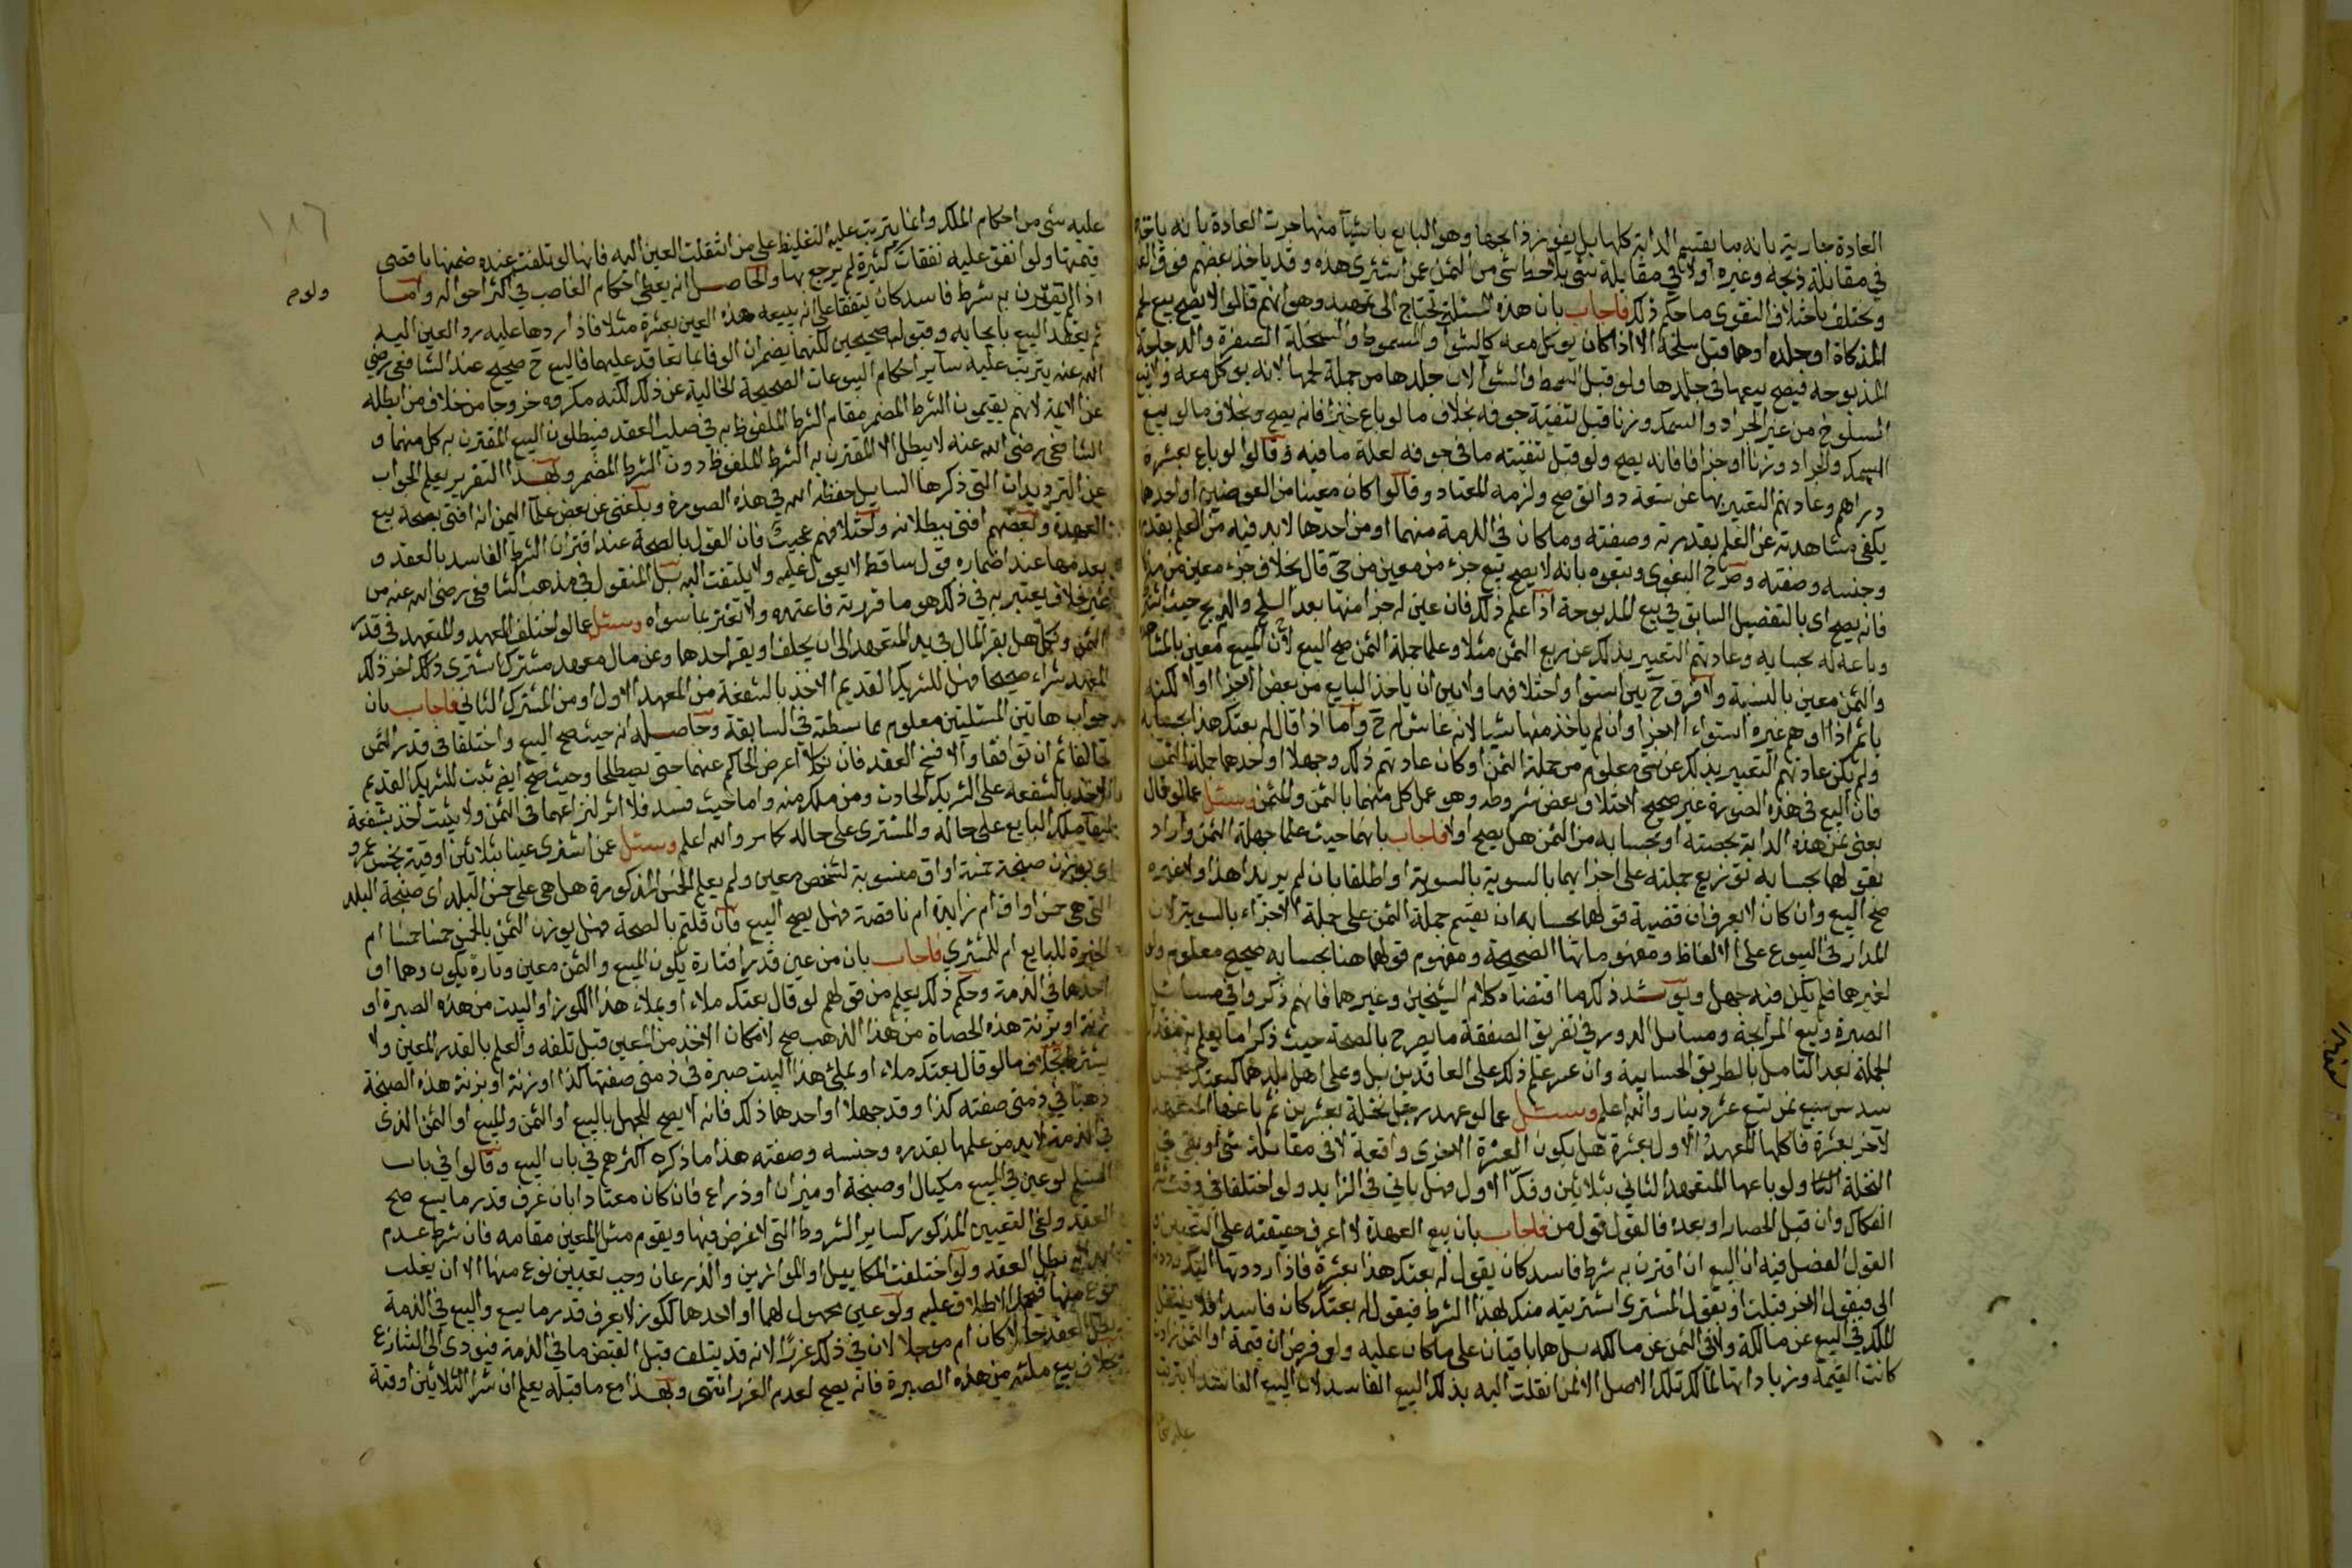 العادة جارية بانه ما يقتسم الدابة كلها بل يفوز ذابحها وهو البايع باشيآ منها جرت العادة بانه ياخذه
في مقابلة ذبحه وغيره اولا في مقابلة شي بلاحظ شي من الثمن عن اشترى هذه وقد ياخذ بعضهم فوق العا
ويختلف باختلاف التقوى ما حكم ذلك فاجاب بان هذه المسئلة تحتاج الى تمهيد وهو انهم قالوا لا يصح بيع لحم
المذكاة او جلدها وهما قبل سلخه الا اذا كان يوكل معه كالشوا والسموط والسخلة الصغيرة والدجاجة
المذبوحة فيصح بيعها في جلدها ولو قبل السمط والشوا لان جلدها من جملة لحمها لانه يوكل معه ولا بيع
المسلوخ من غير الجراد والسمك وزنا قبل تنقية جوفه بخلاف ما لو باع جزافا فانه يصح وبخلاف ما لو بيع
السمك والجراد وزنا او جزافا فانه يصح ولو قبل تنقيته ما في جوفه لعلة ما فيه وقالوا لو باع بعشرة
دراهم وعادتهم التعبير بها عن ستعة دوانق صح ولزمه المعتاد وقالوا كان معينا من العوضين او احدهما
يكفي مشاهدته عن العلم بقدره وصفته وما كان في الذمة منهما او من احدها لا بد فيه من العلم بقدره
وجنسه وصفته وصرح البغوي وتبعوه بانه لا يصح بيع جزء من معين من حي قال بخلاف جزء معين من مذكا
فانه يصح اى بالتفصيل السابق في بيع المذبوحة اذا علم ذلك فان عين له جزا منها بعد السلخ والذبح حيث اشتر
وباعه له بحسابه وعادتهم التعبير بذلك عن ربع الثمن مثلا وعلما جملة الثمن صح البيع لان المبيع معين بالمشاهد
والثمن معين بالنسبة ولا فرق ح بين استوا واختلافهما ولا بين ان ياخذ البايع من بعض الاجزا اولا لكنه
ياثم اذا اوهم غيره استواء الاجزا وان لم ياخذ منها شيا لانه غاش له ح واما اذا قال له بعتك هذا بحسابه
ولم يكن عادتهم التعبير بذلك عن شي معلوم من جملة الثمن او كان عادتهم ذلك وجهلا او احدهما جملة الثمن
فان البيع في هذه الصورة غير صحيح لاختلاف بعض شروطه وهو عمل كل منهما بالثمن والمثمن وسئل عما لو قال
بعني ثمن هذه الدابة بحصته او بحسابه من الثمن هل يصح اولا فاجاب بانهما حيث علما جملة الثمن واراد
بقولهما بحسابه توزيع جملته على اجزائها بالسوية بالسوية او اطلقا بان لم يريدا هذا ولا غيره
صح البيع وان كان لا يعرفان قضية قولهما بحسابه ان يقسم جملة الثمن على جملة الاجزاء بالسوية لان
المدار في البيوع على الالفاظ ومفهوماتها الصحيحة ومفهوم قولهما هنا بحسابه صحيح معلوم وان
لغيرهما فلم يكن فيه جهل ويؤيد ذلك ما اقتضاه كلام الشيخين وغيرهما فانهم ذكروا في مسائل
الصبرة وبيع المرابحة ومسايل الدور في تفريق الصفقة ما يصرح بالصحة حيث ذكرا ما يعلم به مقدار
الجملة بعد التامل بالطريق الحسابية وان عسر علم ذلك على العاقدين بل وعلى اهل بلدهما كبعتك بخمس
سدس سبع ثمن تسع عشر دينار والله اعلم وسئل عما لو عهد رجل نخلة بعشرين ثم باعها المتعهد
لاخر بعشرة فاكلها المعهد الاول بعشرة هل يكون العشرة الاخرى واقعة لا في مقابلة شي او بقي في
النخلة ولو باعها المتعهد الثاني بثلاثين وفكّ الاول فهل ياتي في الزايد ولو اختلفا في وقت
الفكاك وان قبل الحصاد او بعده فالقول قول من فاجاب بان بيع العهدة لا اعرف حقيقته على التعيين و
القول الفضل فيه ان البيع ان اقترن به شرط فاسد كان يقول له بعتك هذا بعشرة فاذا رددتها اليك رددته
الى فيقول الاخر قبلت او يقول المشترى اشتريته منك لهذا الشرط فيقول له بعتك كان فاسدا فلا ينتقل
الملك في البيع عن مالكه ولا في الثمن عن مالكه بل هما باقيان على ما كان عليه ولو فرض ان قيمة او الثمن زادت
كانت القيمة وزياداتها لمالك تلك الاصل لا لمن انقلت اليه بذلك البيع الفاسد لان البيع الفاسد لا يترتب
عليه شي
عليه شي من احكام الملك وانما يترتب عليه التغليظ على من انتقلت العين اليه فانها لو تلفت عنده ضمنها باقصى
قيمتها ولو انفق عليه نفقات كثيرة لم يرجع بها والحاصل انه يعطى احكام الغاصب في اكثر احواله واما
اذا لم يقترن به شرط فاسد كان يتفقا على انه يبيعه هذه العين بعشرة مثلا فاذا ردها عليه رد العين اليه
ثم يعقد البيع بايجابه وقبول صحيحين لكنهما يضمران الوفا بما تعاقد عليهما فالبيع ح صحيح عند الشافعي رضي
الله عنه يترتب عليه ساير احكام البيوعات الصحيحة الخالية عن ذلك لكنه مكروه خروجا من خلاف من ابطله
من الايمة لانهم يقيمون الشرط المضمر مقام الشرط الملفوظ به في صلب العقد فيبطلون البيع المقترن به كل منهما و
الشافعي رضي الله عنه لا يبطل الا المقترن به الشرط الملفوظ دون الشرط المضمر ولهذا التقرير يعلم الجواب
عن الترديدات التي ذكرها السايل حفظه الله في هذه الصورة وبلغني عن بعض علمآ اليمن انه افتى بصحة بيع
العهدة وبعضهم افتى ببطلانه واختلافهم عجيب فان القول بالصحة عند اقتران الشرط الفاسد بالعقد و
بعدمها عند اضماره قول ساقط لا يعول عليه ولا يلتفت اليه بل المنقول في مذهب الشافعي رضي الله عنه من
غير خلاف يعتبر به في ذلك هو ما قررته فاعتمده ولا تغتر بما سواه وسئل عما لو اختلف المعهد والمتعهد في قدر
الثمن ونكلا هل يقر المال في يد المتعهد الى ان يحلف او يقر احدها وعن مال معهد مشترك اشترى ذلك اخر ذلك
المعهد شراء صحيحا فهل للشريك القديم الاخذ بالشفعة من المعهد الاول او من المشترك الثاني فاجاب بان
جواب هاتين المسئلتين معلوم مما بسطته في السابقة وحاصله انه حيث صح البيع واختلفا في قدر الثمن
تحالفا ثم ان توافقا والا فسخ العقد فان نكلا اعرض الحاكم عنهما حتى يصطلحا وحيث صح ايضا ثبت للشريك القديم
الاخذ بالشفعه على الشريك الحادث ومن ملك منه واما حيث فسد فلا اثر لنزاعهما في الثمن ولا يثبت اخذ بشفعة
ملك البايع على حاله والمشترى على حاله كما مر والله اعلم وسئل عمن اشترى عينا بثلاثين اوقية بخمس عمرو
اي بوزن صنجة خمسة اواق منسوبة لشخص معين ولم يعلم الخمس المذكورة هل هي على خمس البلد اى صنجة البلد
التي هي خمس اواق ام زايدة ام ناقصة فهل يصح البيع فان قلتم بالصحة فهل يوزن الثمن بالخمس خمسا خمسا ام
الخيرة للبايع ام للمشتري فاجاب بان من عين قدرا فتارة يكون المبيع والثمن معين وتارة يكون وهما او
احدها في الذمة وحكم ذلك يعلم من قولهم لو قال بعتك ملاء او بملاء هذا الكوز او البيت من هذه الصبرة او
زنة او بزنة هذه الحصاة من هذا الذهب صح لامكان الاخذ من المعين قبل تلفه والعلم بالقدر المعين ولا
يشترط بخلاف ما لو قال بعتك ملاء او بملئ هذا البيت صبرة في ذمتي صفتها كذا او زنة او بزنة هذه الصنجة
ذهبا في ذمتي صفته كذا وقد جهلا او احدهما ذلك فانه لا يصح للجهل بالبيع او الثمن والمبيع او الثمن الذى
في الذمة لا بد من علمها بقدره وجنسه وصفته هذا ما ذكره اكثرهم في باب البيع وقالوا في باب
السلم لو عين في المبيع مكيال او صنجة او ميزان او ذراع فان كان معتادا بان عرف قدر ما يسع صح
العقد ولغى التعيين المذكور كساير الشروط التي لا غرض فيها ويقوم مثل المعين مقامه فان شرط عدم
ابداله بطل العقد ولو اختلفت المكاييل او الموازين والذرعان وجب تعيين نوع منها الا ان يغلب
نوع منها فيحمل الاطلاق عليه ولو عين مجهول لهما او احدهما ككوز لا عرف قدر ما يسع والبيع في الذمة
بطل العقد حالا كان ام مؤجلا لان في ذلك غررًا لانه قد يتلف قبل القبض ما في الذمة فيؤدى الى التنازع
بخلاف بيع ملئه من هذه الصبرة فانه يصح لعدم الغرر انتهى ولهذا مع ما قبله يعلم ان شرا الثلاثين اوقية
ولو م
١٨٦